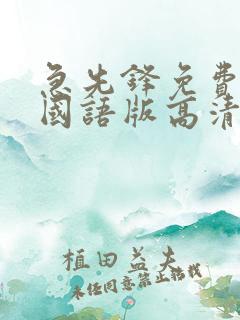 急先鋒免費
國語版高清
植田益夫
未任同意禁止轉載